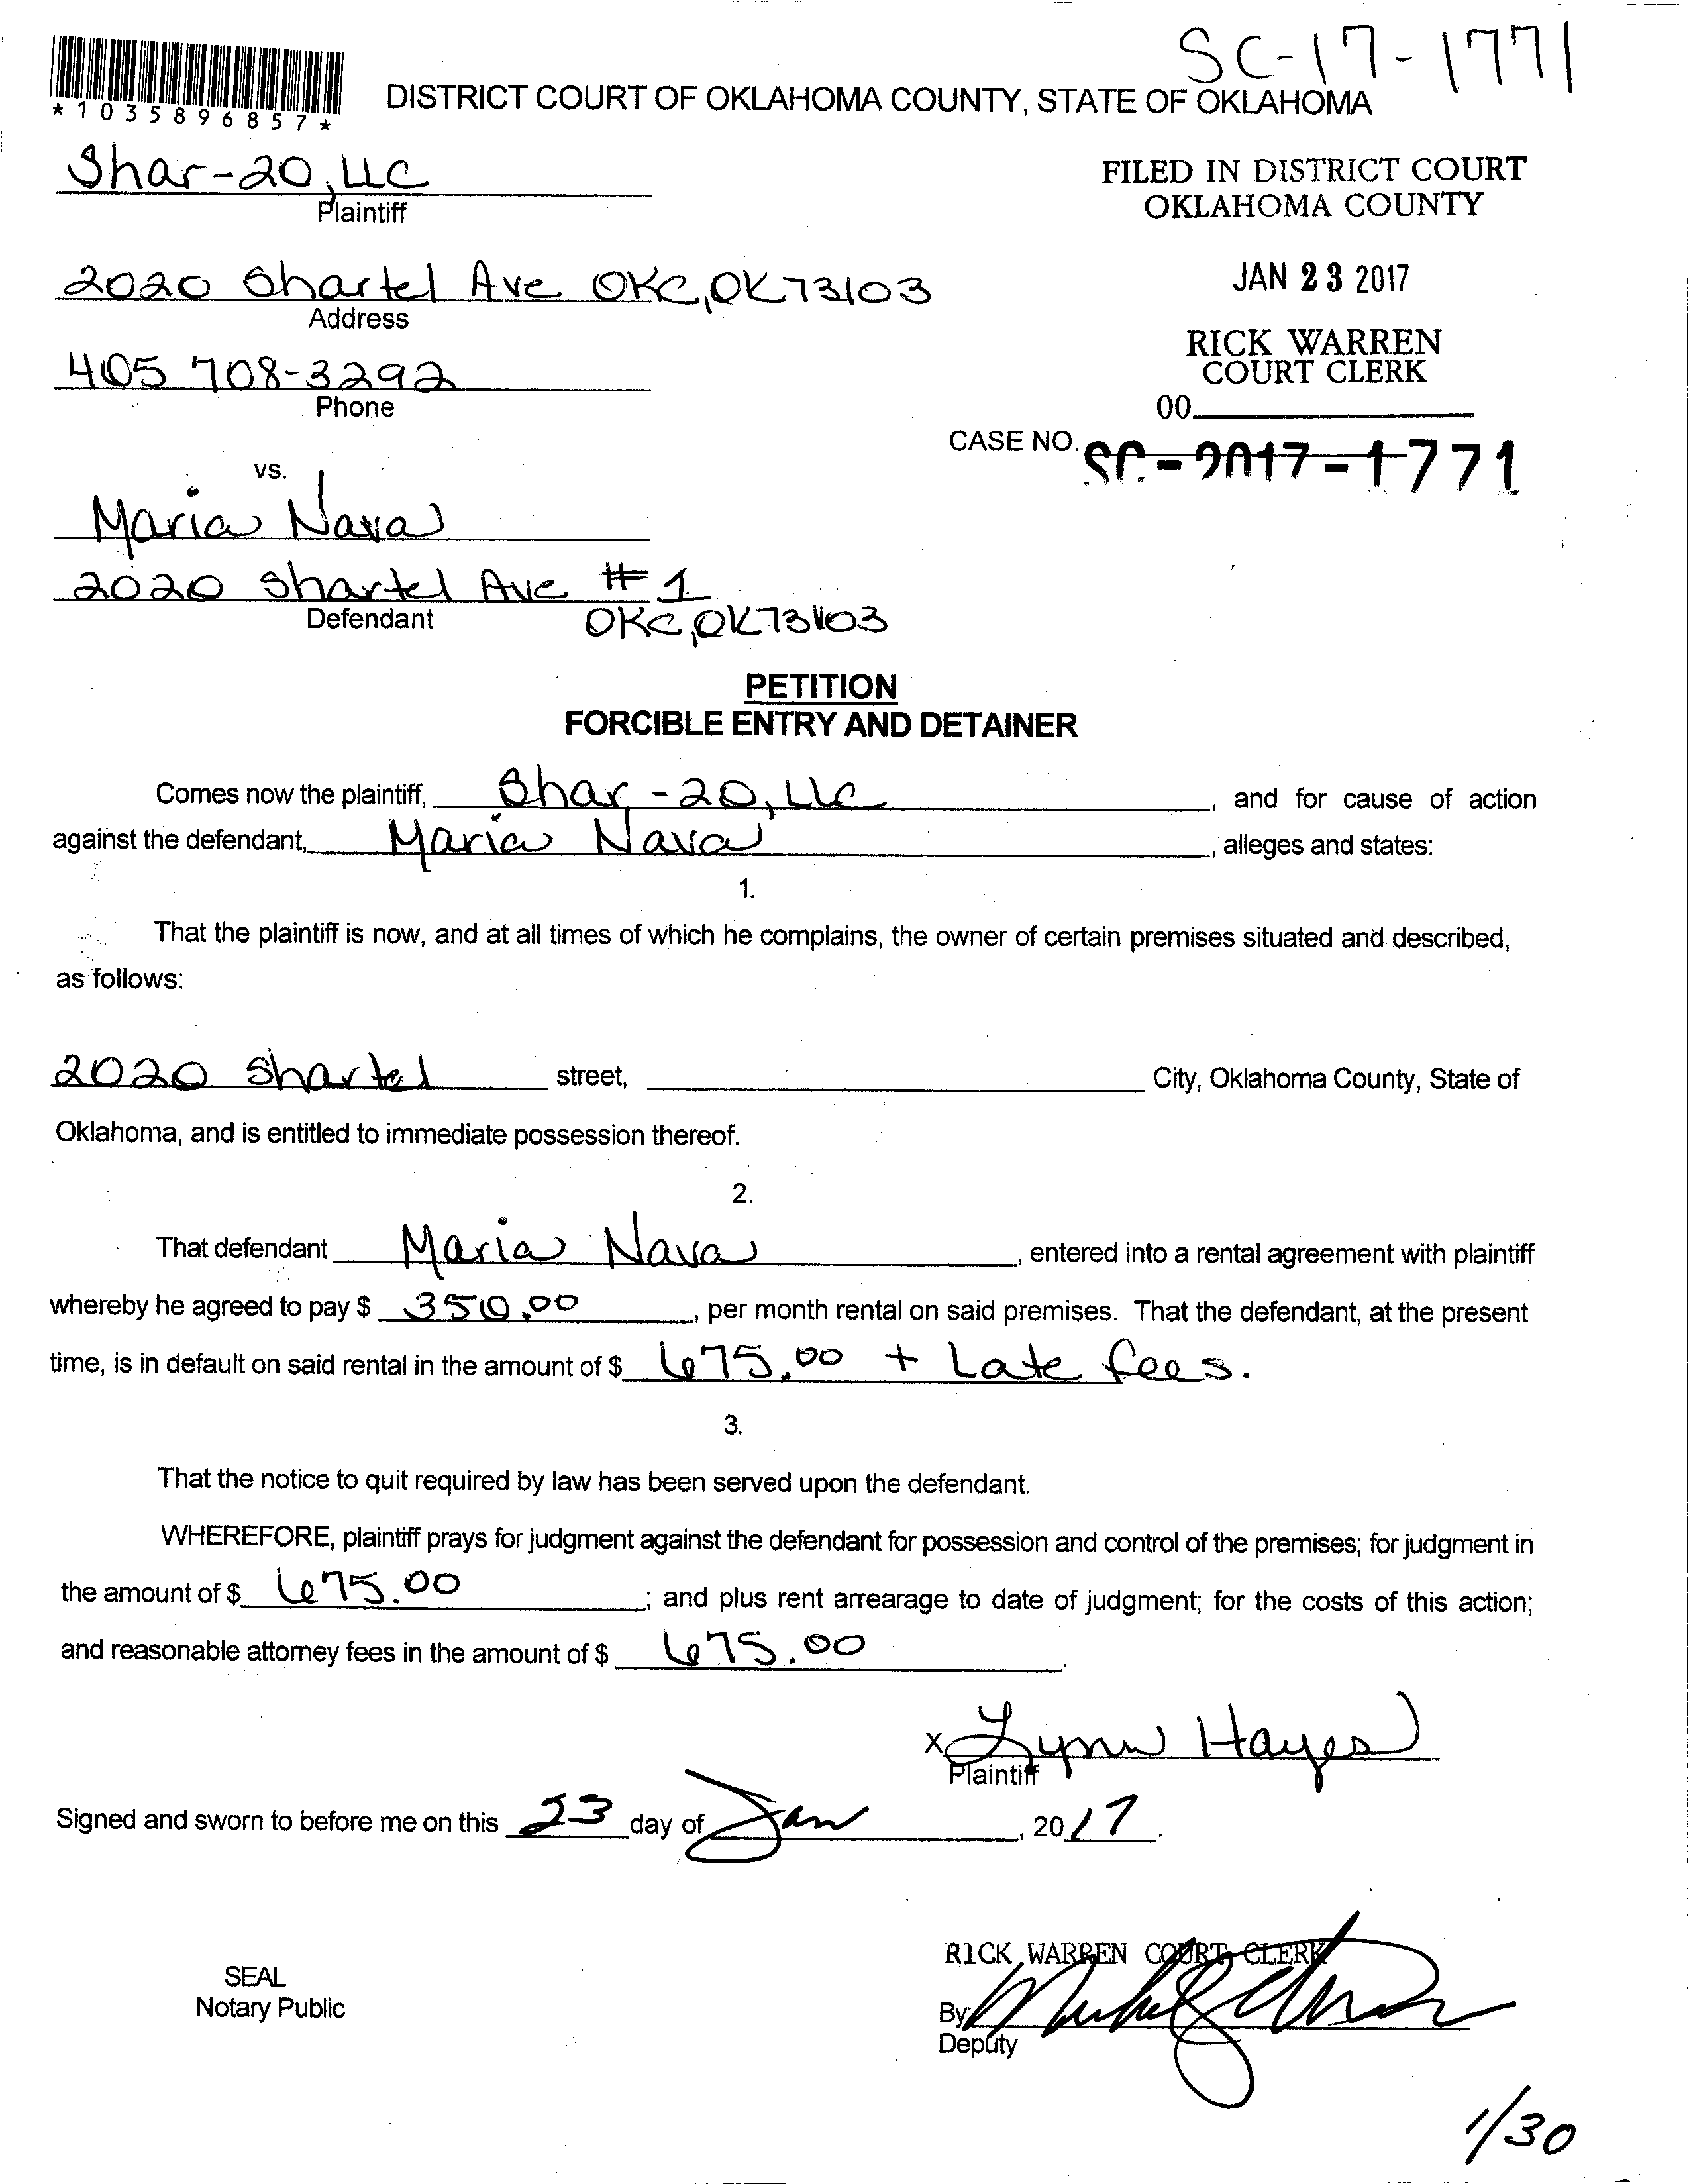 SC-17-1771
*1035896857*
DISTRICT COURT OF OKLAHOMA COUNTY, STATE OF OKLAHOMA
Shar-20, LLC
Plaintiff
FILED IN DISTRICT COURT
OKLAHOMA COUNTY
2020 Shartel Ave OKC, OK 73103
Address
JAN 23 2017
405 708-3292
Phone
RICK WARREN
COURT CLERK
00
CASE NO. SC-2017-1771
vs.
Maria Nava
2020 Shartel Ave #1
Defendant
OKC, OK 73103
PETITION
FORCIBLE ENTRY AND DETAINER
Comes now the plaintiff, Shar-20, LLC, and for cause of action
against the defendant, Maria Nava, alleges and states:
1.
That the plaintiff is now, and at all times of which he complains, the owner of certain premises situated and described,
as follows:
2020 Shartel street, City, Oklahoma County, State of
Oklahoma, and is entitled to immediate possession thereof.
2.
That defendant Maria Nava, entered into a rental agreement with plaintiff
whereby he agreed to pay $ 350.00, per month rental on said premises. That the defendant, at the present
time, is in default on said rental in the amount of $ 675.00 + Late fees.
3.
That the notice to quit required by law has been served upon the defendant.
WHEREFORE, plaintiff prays for judgment against the defendant for possession and control of the premises; for judgment in
the amount of $ 675.00; and plus rent arrearage to date of judgment; for the costs of this action;
and reasonable attorney fees in the amount of $ 675.00.
X Lynn Hayes
Plaintiff
Signed and sworn to before me on this 23 day of Jan, 2017.
RICK WARREN COURT CLERK
SEAL
Notary Public
By
Deputy
1/30